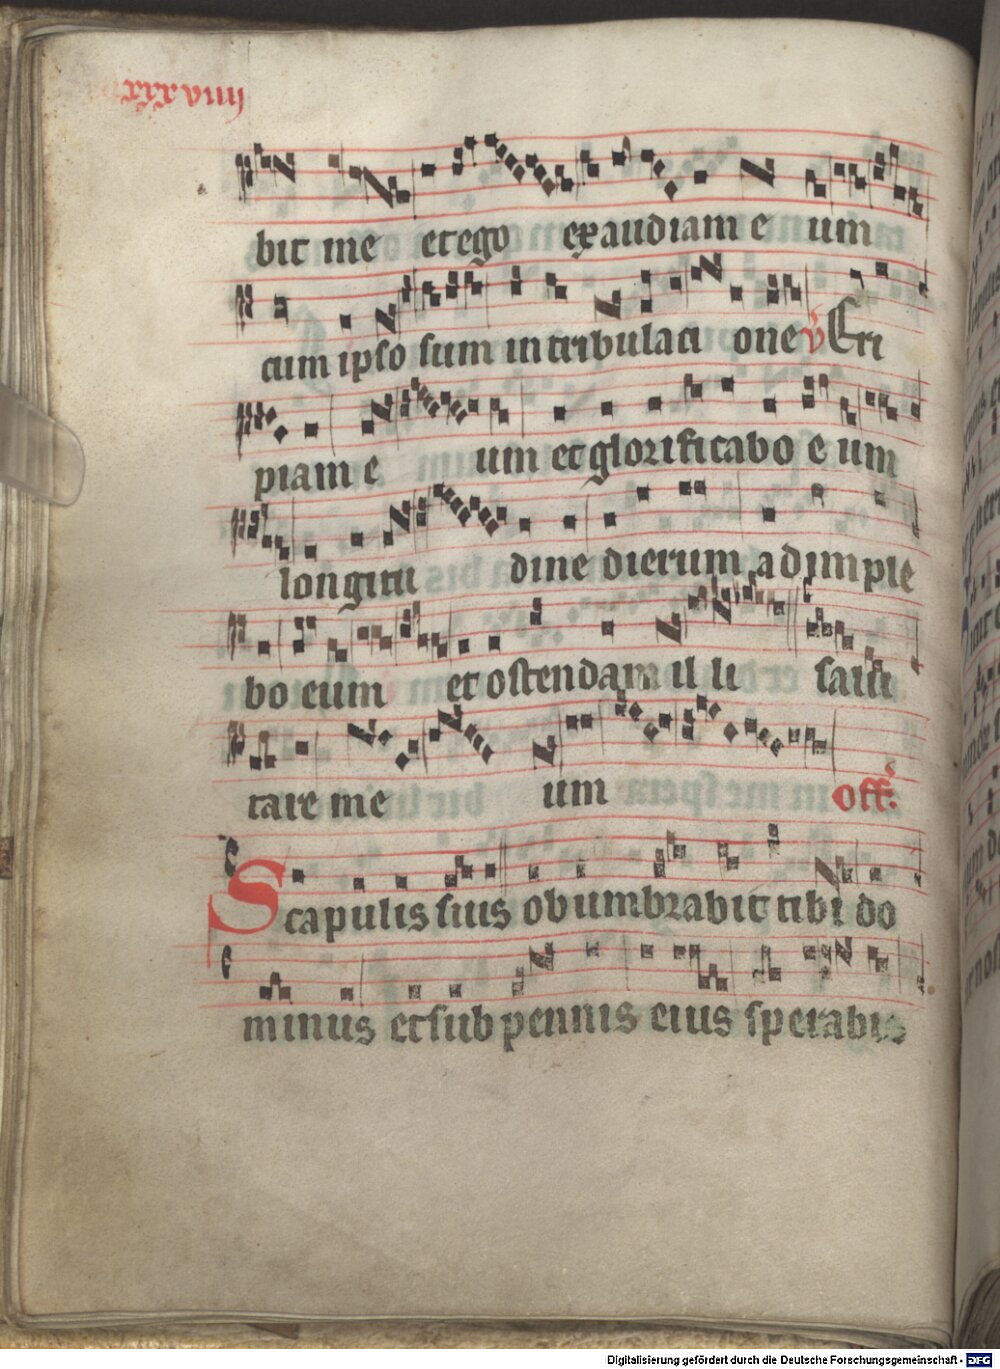 xxxviiii
bit me et ego exaudiam e um
cum ipso sum in tribulaci one v Eri
piam e um et glorificabo e um
longitu dine dierum adimple
bo eum et ostendam il li salu
tare me um off.
Scapulis suis obumbrabit tibi do
minus et sub pennis eius sperabis
Digitalisierung gefördert durch die Deutsche Forschungsgemeinschaft - DFG